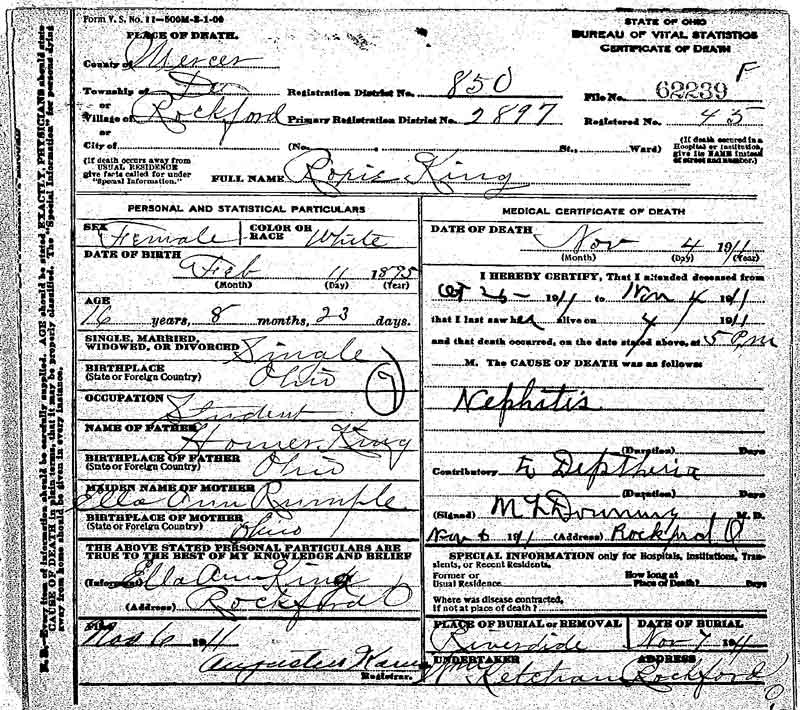 Form V. S. No. 11-500M-8-1-09
STATE OF OHIO
BUREAU OF VITAL STATISTICS
CERTIFICATE OF DEATH
PLACE OF DEATH.
County of Mercer
Township of
Registration District No. 850
File No. 62239 F
or
Village of Rockford
Primary Registration District No. 2897
Registered No. 45
or
City of (No. St., Ward)
(If death occurred in a Hospital or institution, give its NAME instead of street and number.)
(If death occurs away from USUAL RESIDENCE give facts called for under "Special Information.")
FULL NAME King
PERSONAL AND STATISTICAL PARTICULARS
SEX Female
COLOR OR RACE White
DATE OF BIRTH
Feb 11 1895
(Month) (Day) (Year)
AGE
16 years, 8 months, 23 days.
SINGLE, MARRIED, WIDOWED, OR DIVORCED Single
BIRTHPLACE
(State or Foreign Country) Ohio
OCCUPATION
Student
NAME OF FATHER
Homer King
BIRTHPLACE OF FATHER
(State or Foreign Country) Ohio
MAIDEN NAME OF MOTHER
Ella Ann Rumple
BIRTHPLACE OF MOTHER
(State or Foreign Country) Ohio
THE ABOVE STATED PERSONAL PARTICULARS ARE TRUE TO THE BEST OF MY KNOWLEDGE AND BELIEF
(Informant) Ella Ann King
(Address) Rockford O
Filed
Nov 6 1911
Augustus
Registrar.
MEDICAL CERTIFICATE OF DEATH
DATE OF DEATH
Nov 4 1911
(Month) (Day) (Year)
I HEREBY CERTIFY, That I attended deceased from
Oct 26 1911 to Nov 4 1911
that I last saw her alive on 4 1911
and that death occurred, on the date stated above, at 5 P.m
M. The CAUSE OF DEATH was as follows:
Nephitis
(Duration) Days
Contributory Diptheria
(Duration) Days
(Signed) M. D.
Nov 6 1911 (Address) Rockford O
SPECIAL INFORMATION only for Hospitals, Institutions, Transients, or Recent Residents.
Former or Usual Residence
How long at Place of Death? Days
Where was disease contracted, if not at place of death?
PLACE OF BURIAL or REMOVAL
Riverside
DATE OF BURIAL
Nov 7 1911
UNDERTAKER
Ketcham
ADDRESS
Rockford O
N. B.—Every item of information should be carefully supplied. AGE should be stated EXACTLY, PHYSICIANS should state
CAUSE OF DEATH in plain terms, that it may be properly classified. The "Special Information" for persons dying
away from home should be given in every instance.